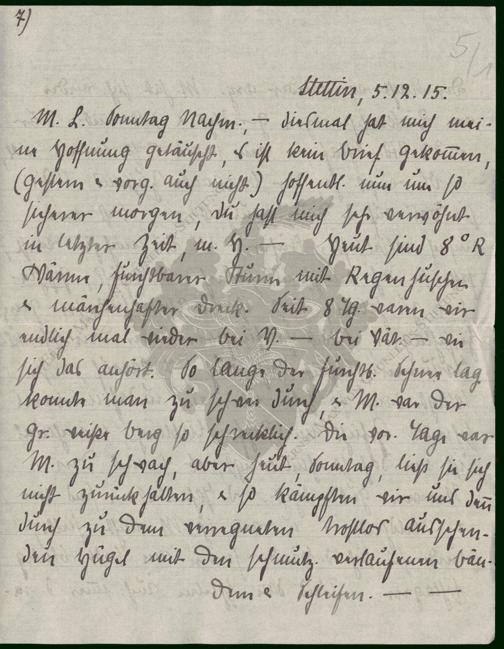 7)
5/1
Stettin, 5.12.15.
M. L. Sonntag Nachm., — diesmal hat mich mei-
ne Hoffnung getäuscht, es ist kein Brief gekommen,
(gestern & vorg. auch nicht) hoffentl. nun um so
sicherer morgen, du hast mich sehr verwöhnt
in letzter Zeit, m. H. — Heut sind 8° R
Wärme, furchtbarer Sturm mit Regenhuschen
& massenhafter Dreck. Seit 8 Tg. waren wir
endlich mal wieder bei V. — bei Vät. — wie
sich das anhört. So lange der furchtb. Schnee lag
konnte man zu schwer durch, & M. war der
gr. weiße Berg so schrecklich. Die vor. Tage war
M. zu schwach, aber heut, Sonntag, ließ sie sich
nicht zurückhalten, & so kämpften wir uns denn
durch zu dem verregneten trostlos aussehen-
den Hügel mit den schmutz. verlaufenen Bän-
dern & Schleifen. — —